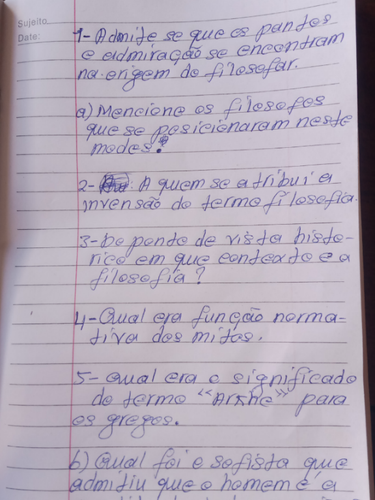 Sujeito
Date:
1- Admite se que os pantos
e admiração se encontram
na origem do filosofar.
a) Mencione os filosofos
que se posicionaram neste
modes.
2- A quem se atribui a
invensão do termo filosofia.
3- Do ponto de vista histo-
rico em que contexto e a
filosofia?
4- Qual era função norma-
tiva dos mitos.
5- Qual era o significado
do termo "Arkhe" para
os gregos.
6) Qual foi o sofista que
admitiu que o homem é a